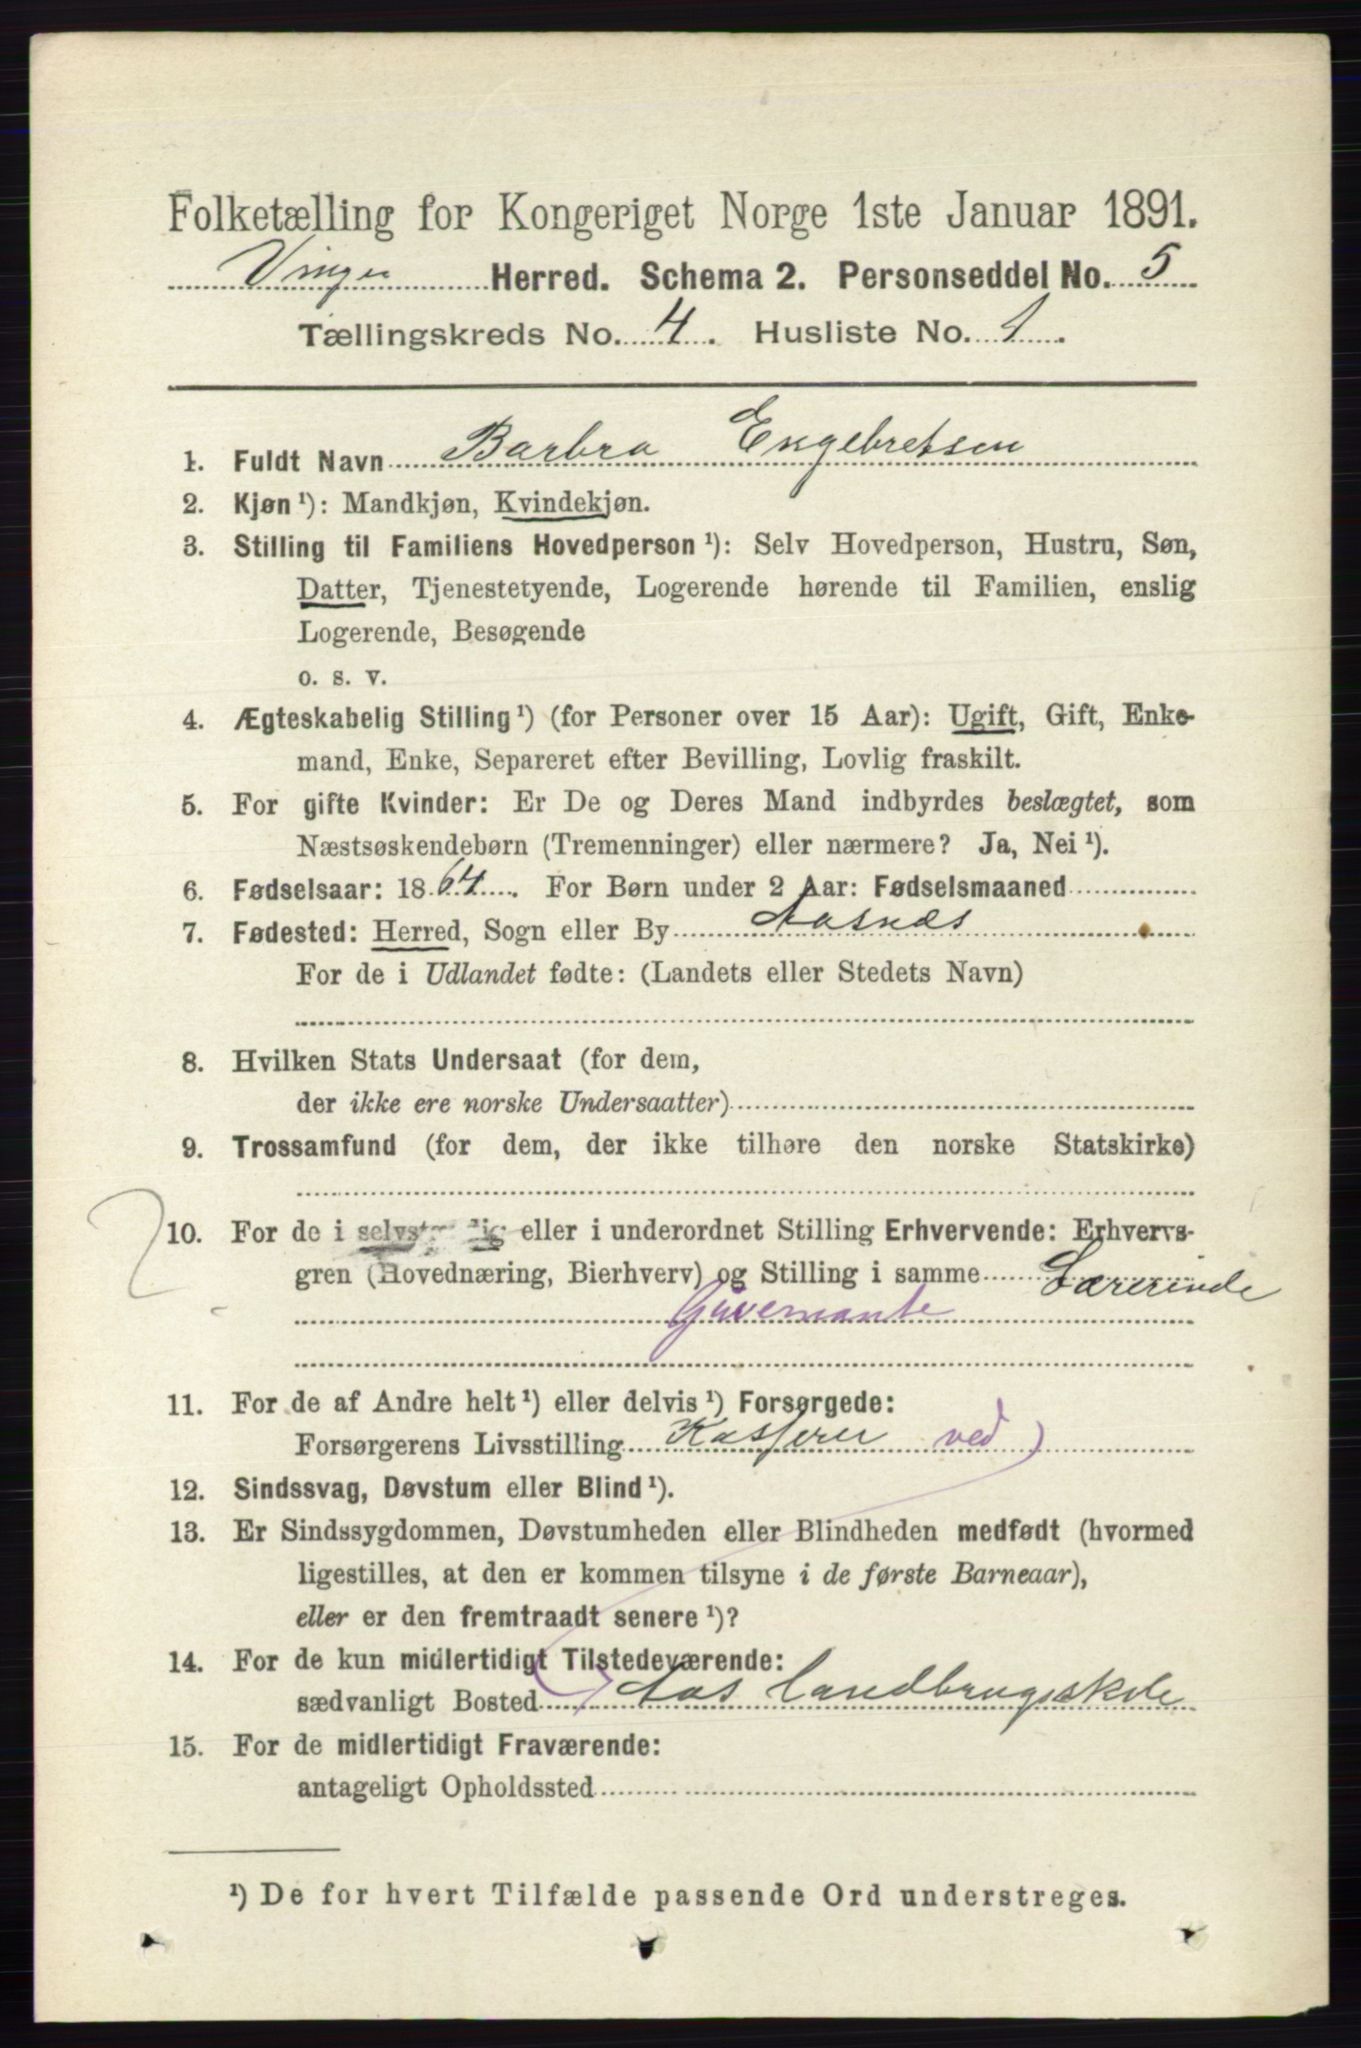 Folketælling for Kongeriget Norge 1ste Januar 1891.
Vinger Herred. Schema 2. Personseddel No. 5
Tællingskreds No. 4. Husliste No. 1.
1. Fuldt Navn Barbra Engebretsen
2. Kjøn¹): Mandkjøn, Kvindekjøn.
3. Stilling til Familiens Hovedperson¹): Selv Hovedperson, Hustru, Søn,
Datter, Tjenestetyende, Logerende hørende til Familien, enslig
Logerende, Besøgende
o. s. v.
4. Ægteskabelig Stilling¹) (for Personer over 15 Aar): Ugift, Gift, Enke-
mand, Enke, Separeret efter Bevilling, Lovlig fraskilt.
5. For gifte Kvinder: Er De og Deres Mand indbyrdes beslægtet, som
Næstsøskendebørn (Tremenninger) eller nærmere? Ja, Nei¹).
6. Fødselsaar: 1864. For Børn under 2 Aar: Fødselsmaaned
7. Fødested: Herred, Sogn eller By Aasnæs
For de i Udlandet fødte: (Landets eller Stedets Navn)
8. Hvilken Stats Undersaat (for dem,
der ikke ere norske Undersaatter)
9. Trossamfund (for dem, der ikke tilhøre den norske Statskirke)
10. For de i selvstændig eller i underordnet Stilling Erhvervende: Erhvervs-
gren (Hovednæring, Bierhverv) og Stilling i samme Lærerinde
Guvernante
11. For de af Andre helt¹) eller delvis¹) Forsørgede:
Forsørgerens Livsstilling Kasserer ved
12. Sindssvag, Døvstum eller Blind¹).
13. Er Sindssygdommen, Døvstumheden eller Blindheden medfødt (hvormed
ligestilles, at den er kommen tilsyne i de første Barneaar),
eller er den fremtraadt senere¹)?
14. For de kun midlertidigt Tilstedeværende:
sædvanligt Bosted Aas Landbrugsskole
15. For de midlertidigt Fraværende:
antageligt Opholdssted
¹) De for hvert Tilfælde passende Ord understreges.